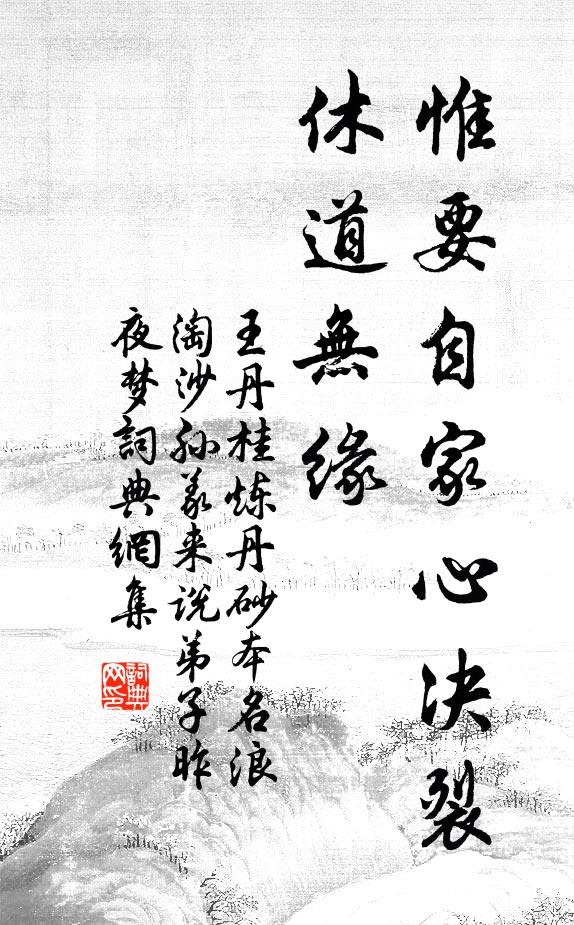 惟要自家心决裂
休道無緣
王丹桂炼丹砂本名浪
淘沙孙義来说弟子昨
夜梦詞典網集
詞典
网印